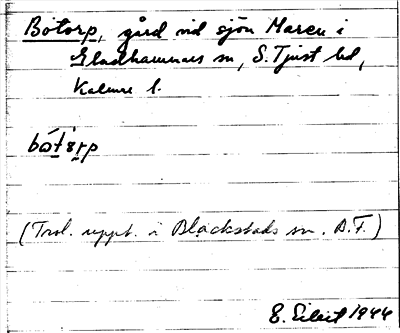 Botorp, gård vid sjön Maren i
Gladhammars sn, S. Tjust hd,
Kalmar l.
bótòrp
(Trol. uppt. i Blackstads sn. B.F.)
1944